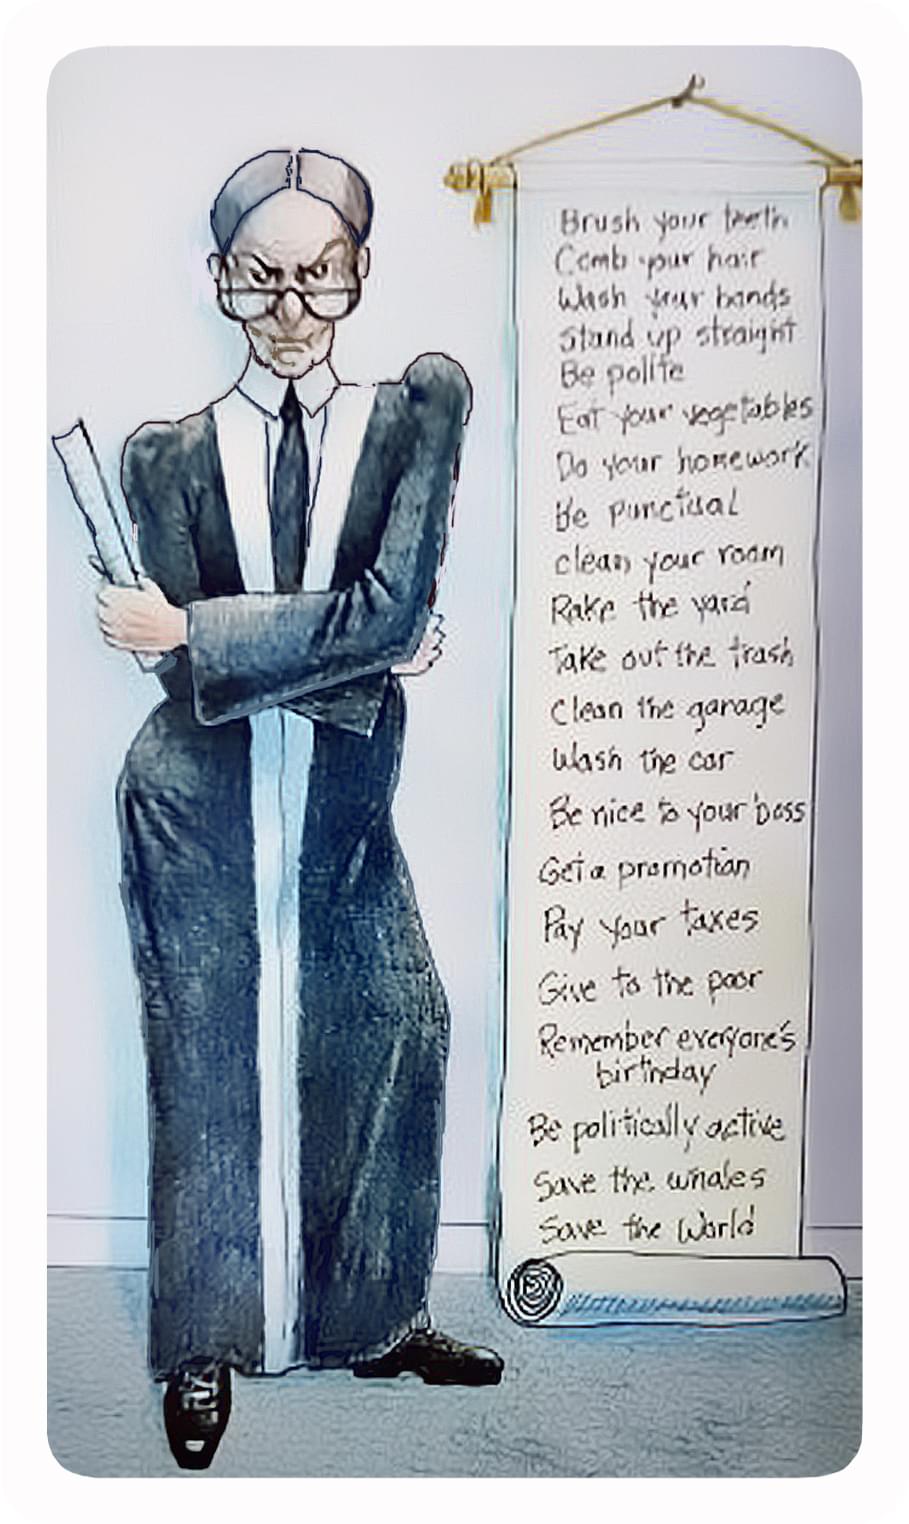 Brush your teeth
Comb your hair
Wash your hands
Stand up straight
Be polite
Eat your vegetables
Do your homework
Be punctual
clean your room
Rake the yard
Take out the trash
Clean the garage
Wash the car
Be nice to your boss
Get a promotion
Pay your taxes
Give to the poor
Remember everyone's
birthday
Be politically active
Save the whales
Save the World